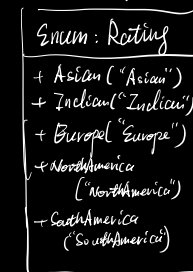 Enum : Rating
+ Asian ("Asian")
+ Indian ("Indian")
+ Europe ("Europe")
+ NorthAmerica
("NorthAmerica")
+ SouthAmerica
("SouthAmerica")